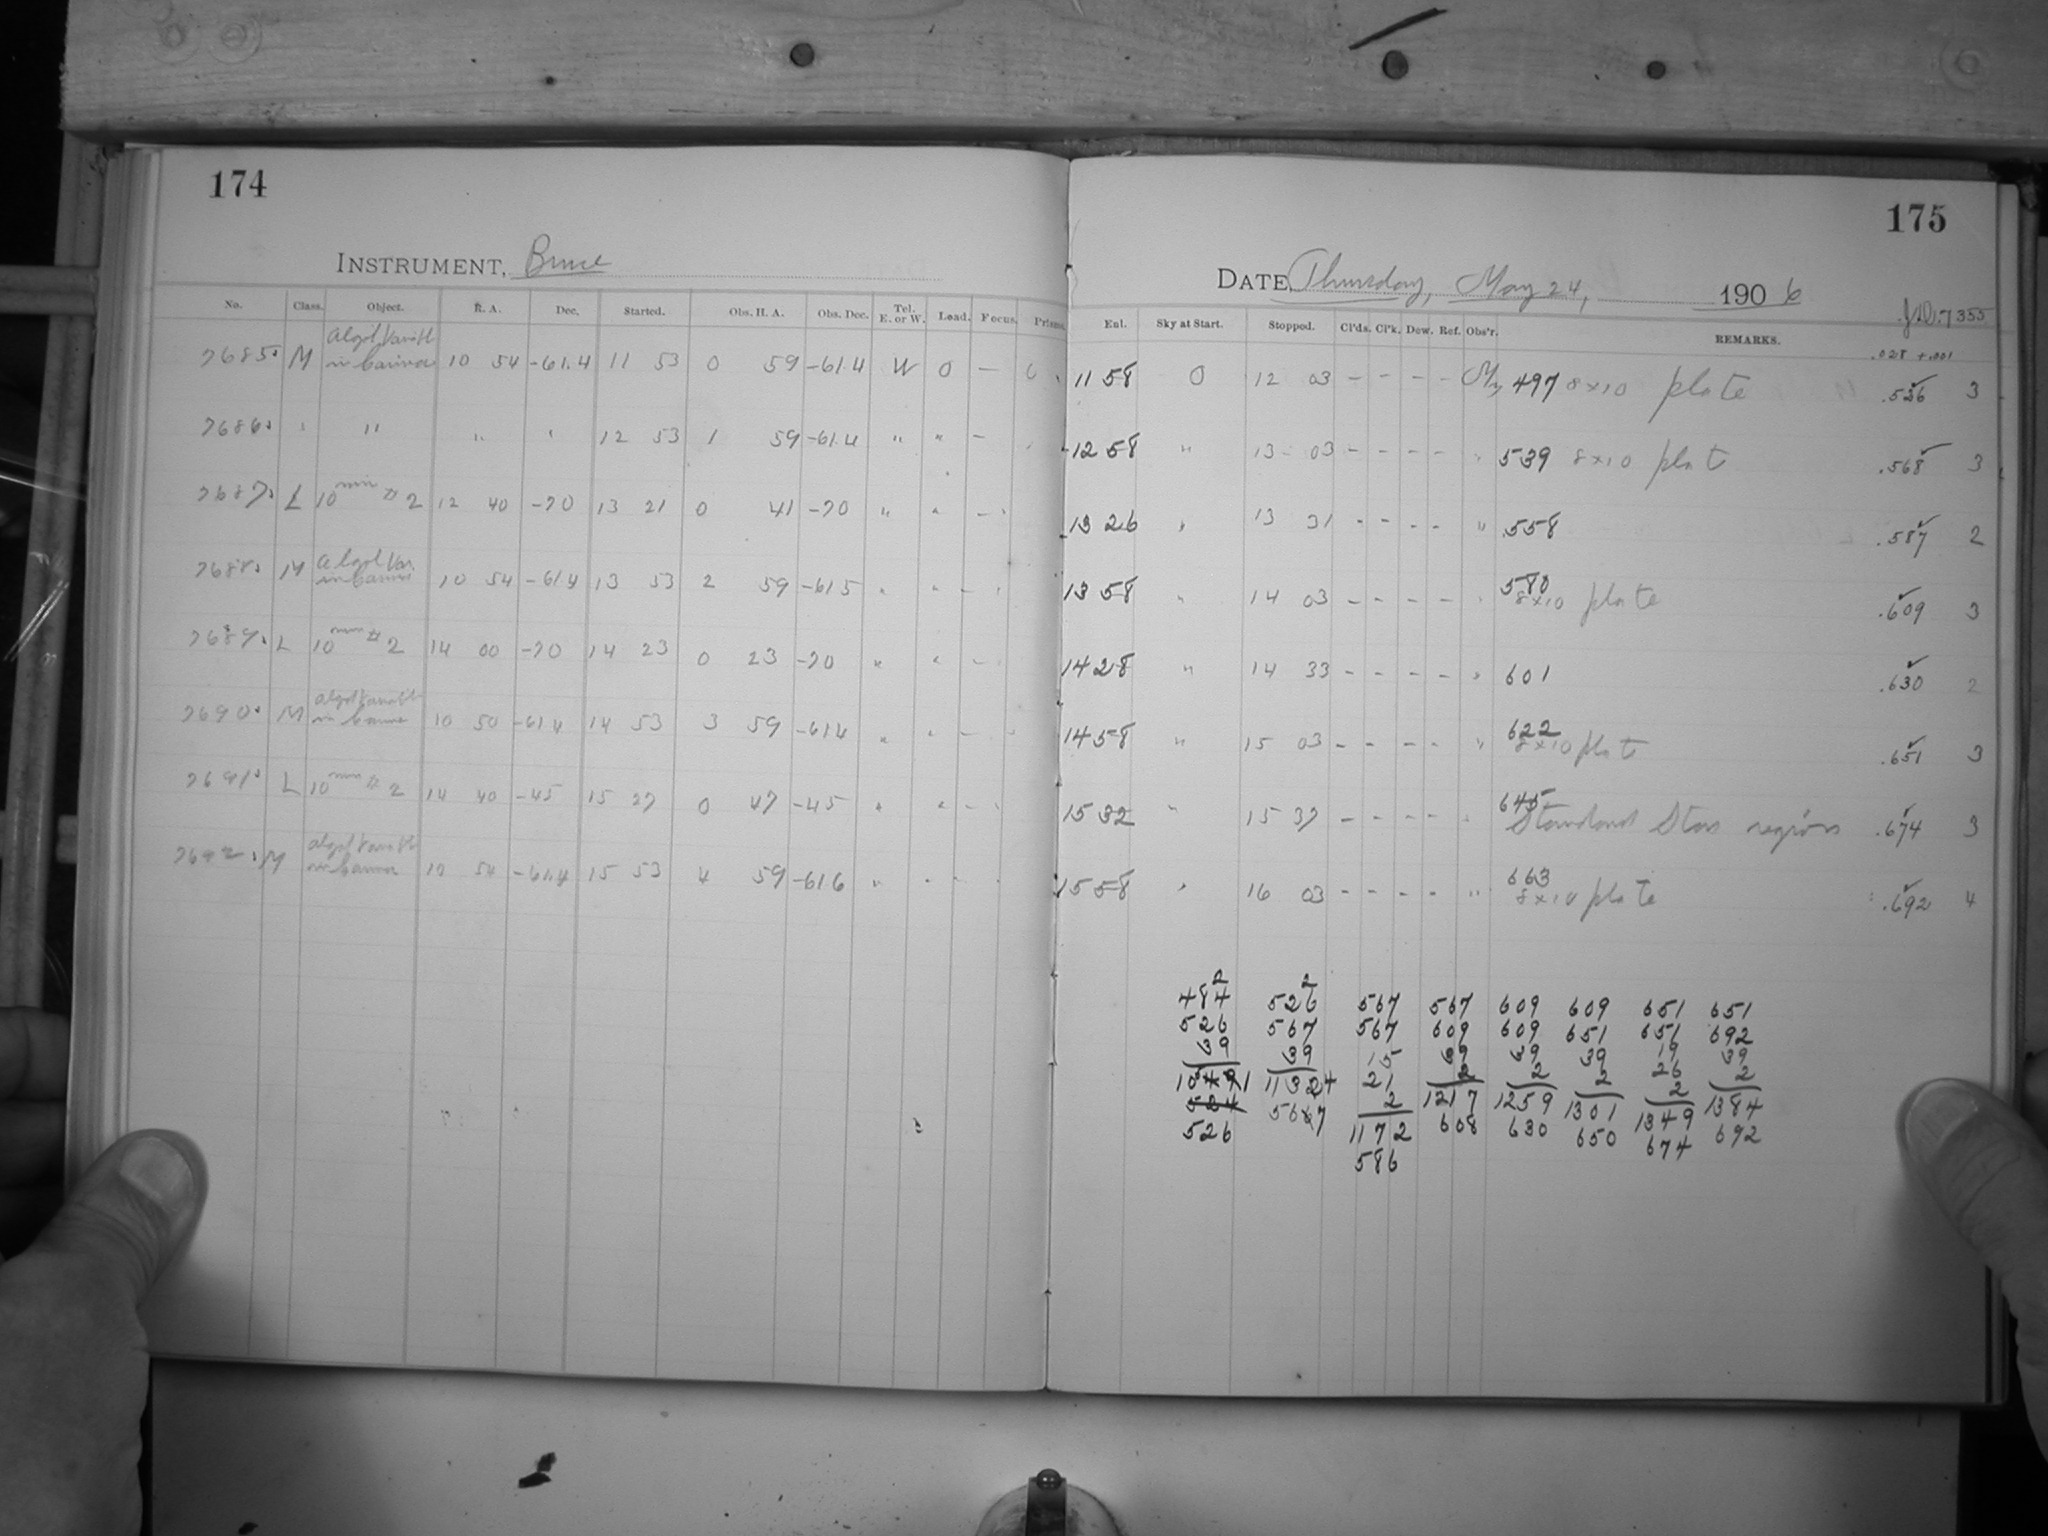 174
INSTRUMENT, Bruce
No. Class. Object. R. A. Dec. Started. Obs. H. A. Obs. Dec. Tel. E. or W. Load. Focus. Prisms.
7685. M Algol Variable in Carina 10 54 -61.4 11 53 0 59 -61.4 W 0 —
7686. " " " " 12 53 1 59 -61.4 " " -
7687. L 10 min # 2 12 40 -70 13 21 0 41 -70 " " -
7688. M Algol Var. in Carina 10 54 -61.4 13 53 2 59 -61.5 " " -
7689. L 10 min # 2 14 00 -70 14 23 0 23 -70 " " -
7690. M Algol Variable in Carina 10 50 -61.4 14 53 3 59 -61.4 " " -
7691. L 10 min # 2 14 40 -45 15 27 0 47 -45 " " -
7692. M Algol Variable in Carina 10 54 -61.4 15 53 4 59 -61.6 " " -
175
DATE, Thursday, May 24, 1906
J.D. 7355
Enl. Sky at Start. Stopped. Cl'ds. Cl'k. Dew. Ref. Obs'r. REMARKS.
.028 +.001
11 58 0 12 03 - - - - 497 8x10 plate .526 3
12 58 " 13 03 - - - - " 539 8x10 plat .568 3
13 26 " 13 31 - - - - " .558 .587 2
13 58 " 14 03 - - - - " 580 8x10 plate .609 3
14 28 " 14 33 - - - - " 601 .630 2
14 58 " 15 03 - - - - " 622 8x10 plate .651 3
15 32 " 15 37 - - - - " 645 Standard Stars regions .674 3
15 58 " 16 03 - - - - " 663 8x10 plate .692 4
2 2
484 526 567 567 609 609 651 651
526 567 567 609 609 651 651 692
39 39 15 39 39 39 19 39
21 2 2 2 26 2
2 1217 1259 1301 2 1384
526 1172 608 630 650 1349 692
586 674